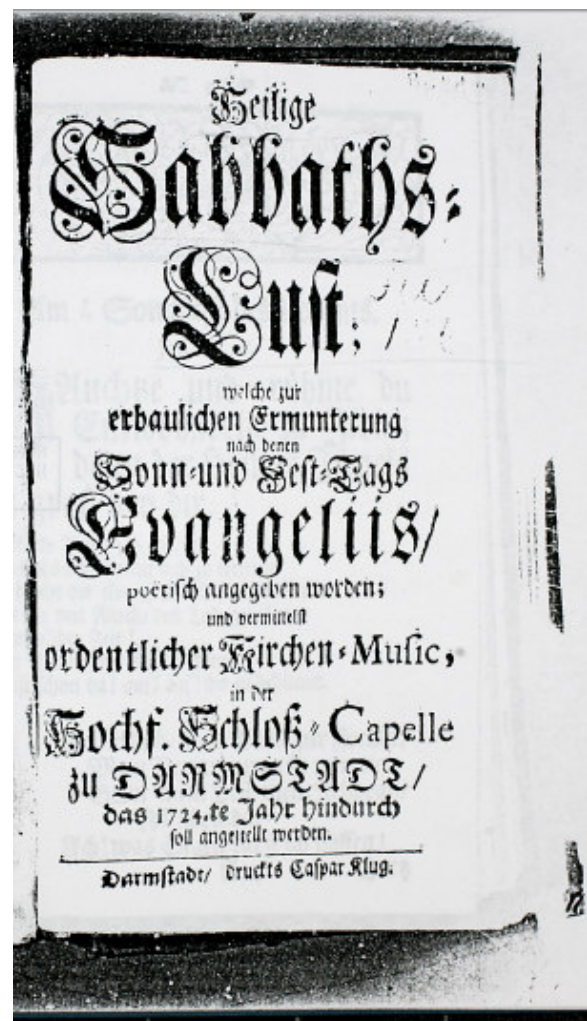 Heilige
Sabbaths-
Lust;
welche zur
erbaulichen Ermunterung
nach denen
Sonn-und Fest-Tags
Evangeliis/
poëtisch angegeben worden;
und vermittelst
ordentlicher Kirchen-Music,
in der
Hochf. Schloß-Capelle
zu DARMSTADT/
das 1724.te Jahr hindurch
soll angestellt werden.
Darmstadt/ druckts Caspar Klug.